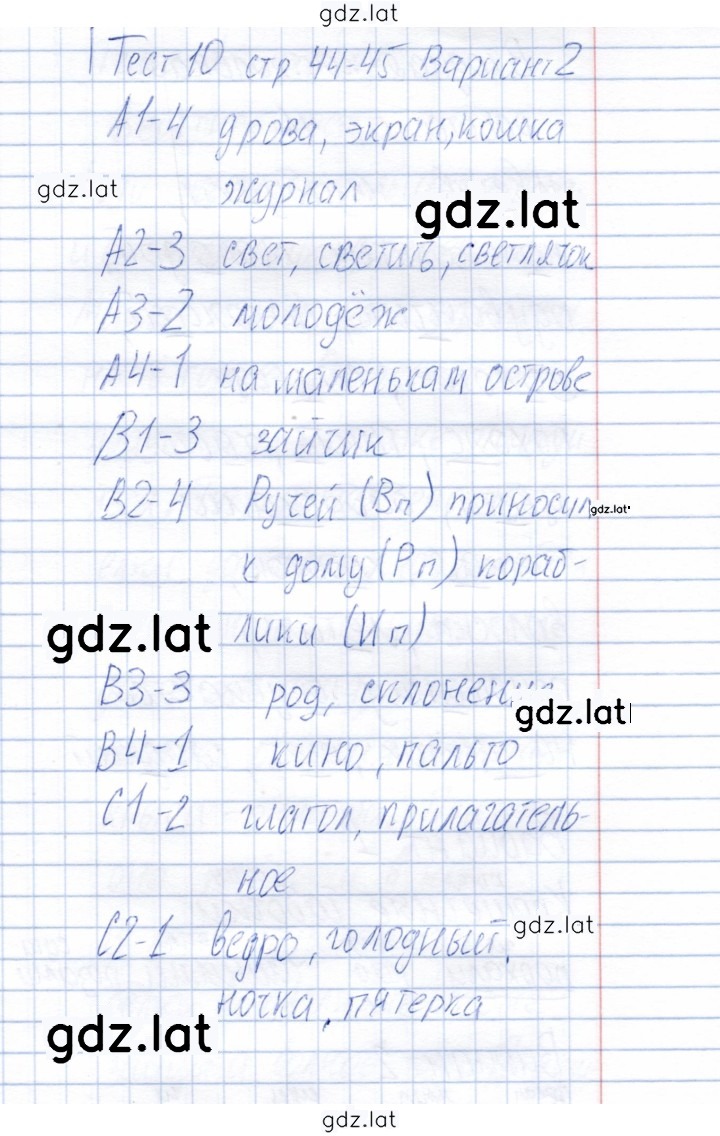 gdz.lat
Тест 10 стр 44-45 Вариант 2
А1-4 дрова, экран, кошка
gdz.lat журнал
gdz.lat
А2-3 свет, светить, светлячок
А3-2 молодёж
А4-1 на маленькам острове
В1-3 зайчик
В2-4 Ручей (Вп) приносил gdz.lat
к дому (Рп) кораб-
gdz.lat лики (Ип)
В3-3 род, склонение
gdz.lat
В4-1 кино, пальто
С1-2 глагол, прилагатель-
ное
С2-1 ведро, голодный, gdz.lat
ночка, пятерка
gdz.lat
gdz.lat